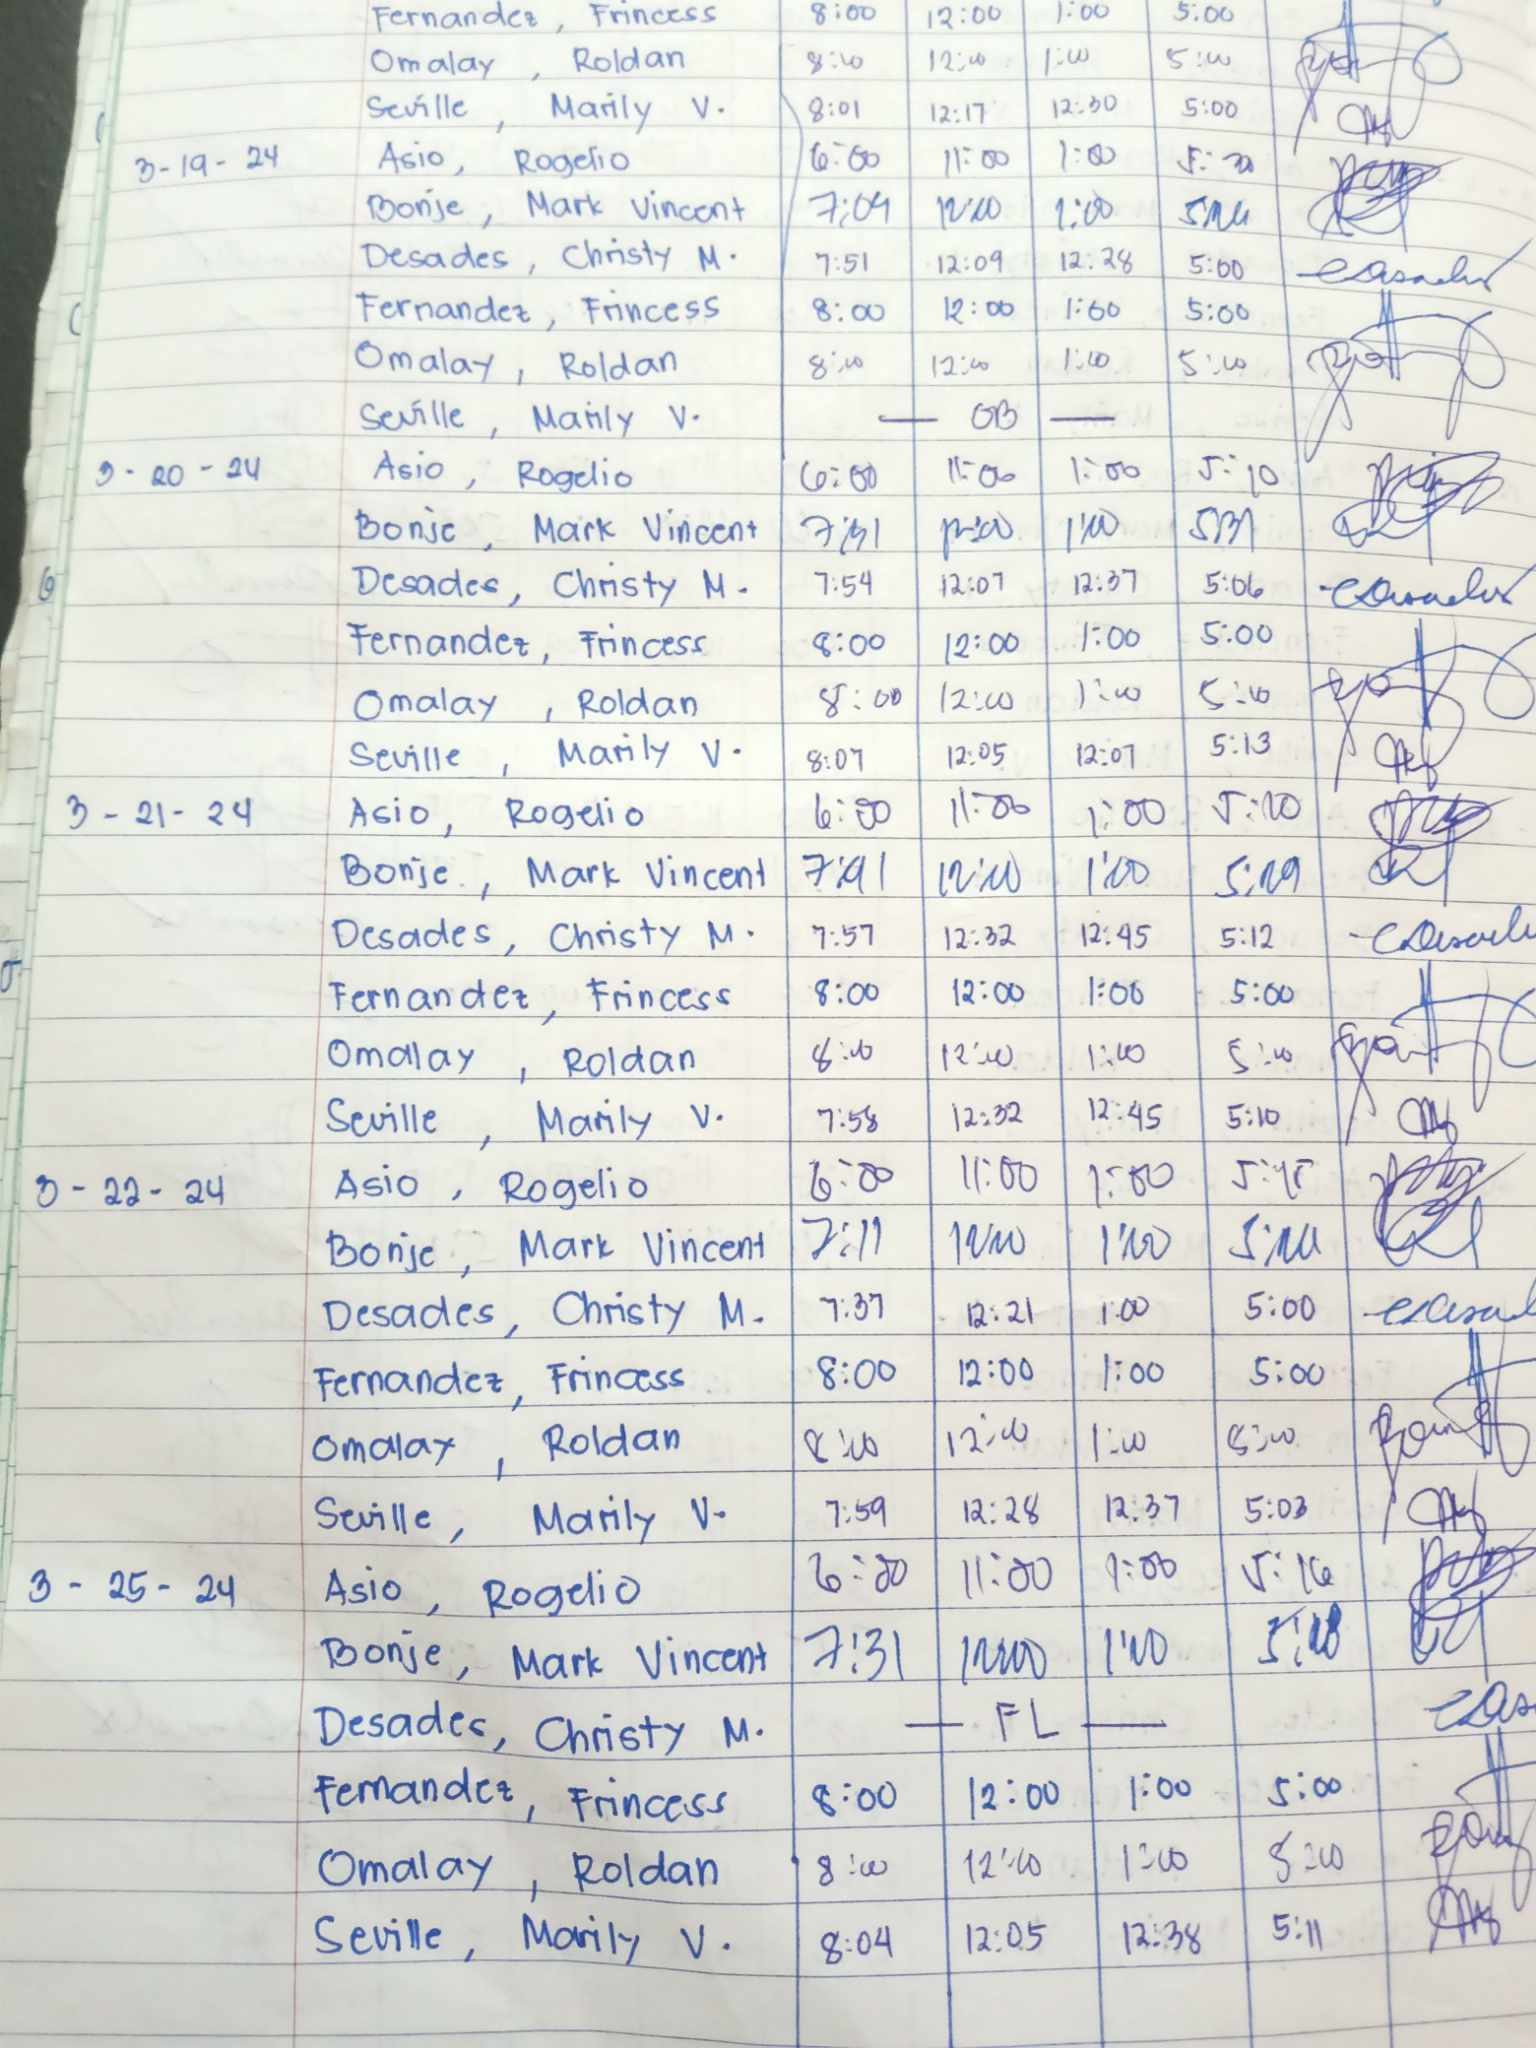 Fernandez, Frincess 8:00 12:00 1:00 5:00
Omalay, Roldan 8:00 12:00 1:00 5:00
Seville, Marily V. 8:01 12:17 12:30 5:00
3-19-24 Asio, Rogelio 6:00 11:00 1:00
Bonje, Mark Vincent 7:09 12:00 1:00
Desades, Christy M. 7:51 12:09 12:28 5:00
Fernandez, Frincess 8:00 12:00 1:00 5:00
Omalay, Roldan 8:00 12:00 1:00 5:00
Seville, Marily V. — OB —
3-20-24 Asio, Rogelio 6:00 11:00 1:00 5:10
Bonje, Mark Vincent 12:00 1:00
Desades, Christy M. 7:54 12:07 12:37 5:06
Fernandez, Frincess 8:00 12:00 1:00 5:00
Omalay, Roldan 8:00 12:00 1:00 5:00
Seville, Marily V. 8:07 12:05 12:07 5:13
3-21-24 Asio, Rogelio 6:00 11:00 1:00
Bonje, Mark Vincent 7:41 12:00 1:00
Desades, Christy M. 7:57 12:32 12:45 5:12
Fernandez, Frincess 8:00 12:00 1:00 5:00
Omalay, Roldan 8:00 12:00 1:00 5:00
Seville, Marily V. 7:58 12:32 12:45 5:10
3-22-24 Asio, Rogelio 6:00 11:00 1:00
Bonje, Mark Vincent 7:11 12:00 1:00
Desades, Christy M. 7:37 12:21 1:00 5:00
Fernandez, Frincess 8:00 12:00 1:00 5:00
Omalay, Roldan 8:00 12:00 1:00 5:00
Seville, Marily V. 7:59 12:28 12:37 5:03
3-25-24 Asio, Rogelio 6:00 11:00 1:00 5:16
Bonje, Mark Vincent 7:31 12:00 1:00
Desades, Christy M. — FL —
Fernandez, Frincess 8:00 12:00 1:00 5:00
Omalay, Roldan 8:00 12:00 1:00 5:00
Seville, Marily V. 8:04 12:05 12:38 5:11